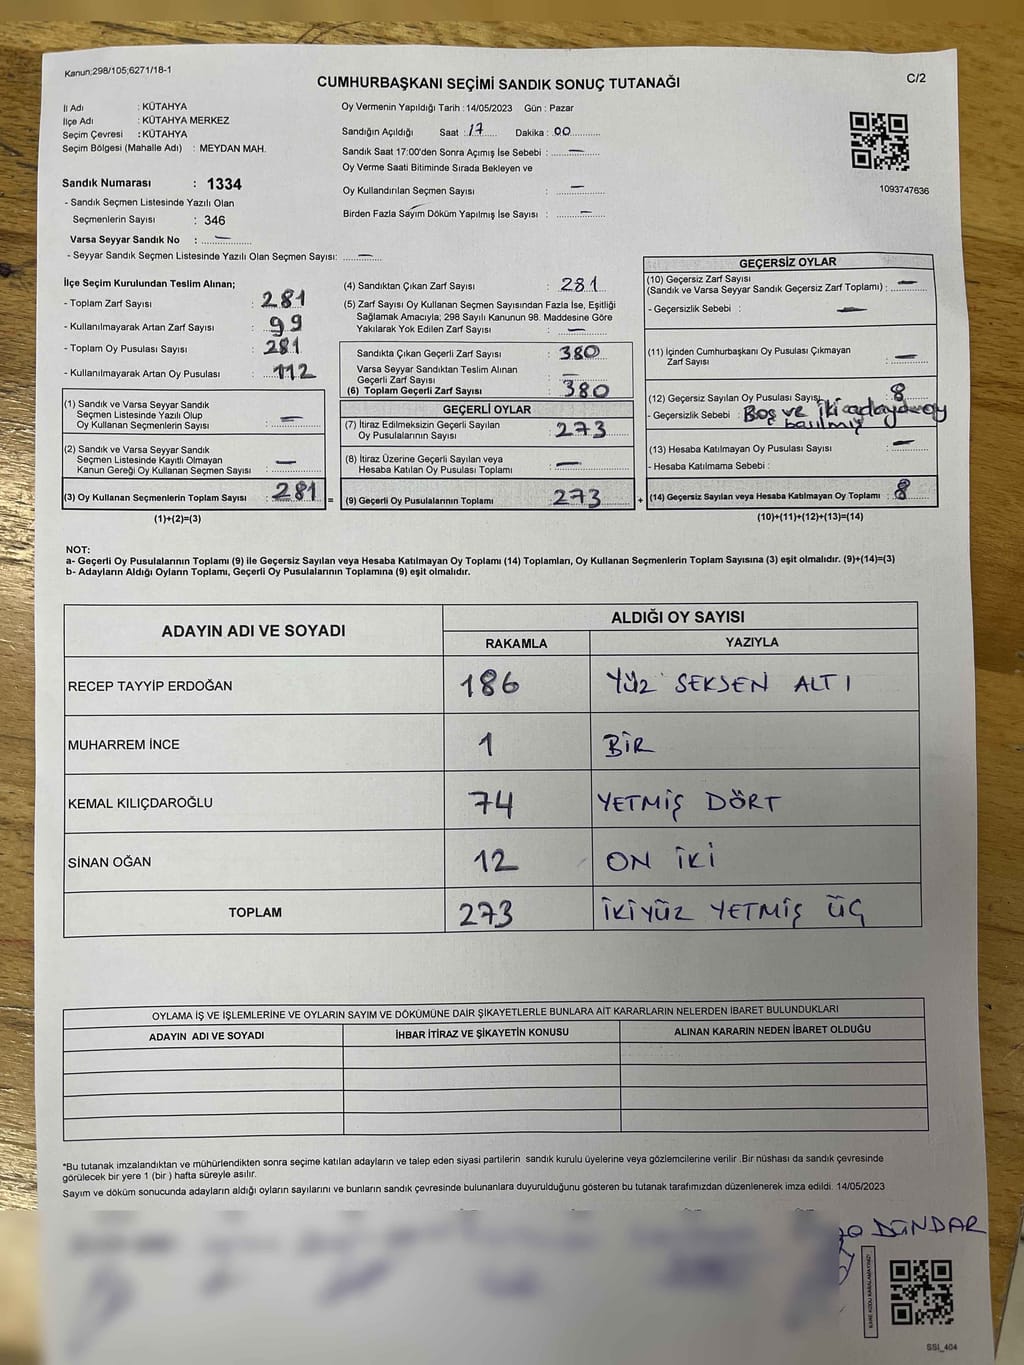 Kanun;298/105;6271/18-1
CUMHURBAŞKANI SEÇİMİ SANDIK SONUÇ TUTANAĞI
C/2
İl Adı : KÜTAHYA
İlçe Adı : KÜTAHYA MERKEZ
Seçim Çevresi : KÜTAHYA
Seçim Bölgesi (Mahalle Adı) : MEYDAN MAH.
Sandık Numarası : 1334
- Sandık Seçmen Listesinde Yazılı Olan
Seçmenlerin Sayısı : 346
Varsa Seyyar Sandık No : —
- Seyyar Sandık Seçmen Listesinde Yazılı Olan Seçmen Sayısı: —
Oy Vermenin Yapıldığı Tarih : 14/05/2023 Gün : Pazar
Sandığın Açıldığı Saat : 17 Dakika : 00
Sandık Saat 17:00'den Sonra Açımış İse Sebebi : —
Oy Verme Saati Bitiminde Sırada Bekleyen ve
Oy Kullandırılan Seçmen Sayısı : —
Birden Fazla Sayım Döküm Yapılmış İse Sayısı : —
1093747636
İlçe Seçim Kurulundan Teslim Alınan;
- Toplam Zarf Sayısı : 281
- Kullanılmayarak Artan Zarf Sayısı : 99
- Toplam Oy Pusulası Sayısı : 281
- Kullanılmayarak Artan Oy Pusulası : 112
(1) Sandık ve Varsa Seyyar Sandık
Seçmen Listesinde Yazılı Olup
Oy Kullanan Seçmenlerin Sayısı : —
(2) Sandık ve Varsa Seyyar Sandık
Seçmen Listesinde Kayıtlı Olmayan
Kanun Gereği Oy Kullanan Seçmen Sayısı : —
(3) Oy Kullanan Seçmenlerin Toplam Sayısı : 281 =
(1)+(2)=(3)
(4) Sandıktan Çıkan Zarf Sayısı : 281
(5) Zarf Sayısı Oy Kullanan Seçmen Sayısından Fazla İse, Eşitliği
Sağlamak Amacıyla; 298 Sayılı Kanunun 98. Maddesine Göre
Yakılarak Yok Edilen Zarf Sayısı : —
Sandıkta Çıkan Geçerli Zarf Sayısı : 380
Varsa Seyyar Sandıktan Teslim Alınan
Geçerli Zarf Sayısı : —
(6) Toplam Geçerli Zarf Sayısı : 380
GEÇERLİ OYLAR
(7) İtiraz Edilmeksizin Geçerli Sayılan
Oy Pusulalarının Sayısı : 273
(8) İtiraz Üzerine Geçerli Sayılan veya
Hesaba Katılan Oy Pusulası Toplamı : —
(9) Geçerli Oy Pusulalarının Toplamı : 273 +
GEÇERSİZ OYLAR
(10) Geçersiz Zarf Sayısı
(Sandık ve Varsa Seyyar Sandık Geçersiz Zarf Toplamı) : —
- Geçersizlik Sebebi : —
(11) İçinden Cumhurbaşkanı Oy Pusulası Çıkmayan
Zarf Sayısı : —
(12) Geçersiz Sayılan Oy Pusulası Sayısı : 8
- Geçersizlik Sebebi : Boş ve iki adaya oy
basılmış
(13) Hesaba Katılmayan Oy Pusulası Sayısı : —
- Hesaba Katılmama Sebebi :
(14) Geçersiz Sayılan veya Hesaba Katılmayan Oy Toplamı : 8
(10)+(11)+(12)+(13)=(14)
NOT:
a- Geçerli Oy Pusulalarının Toplamı (9) ile Geçersiz Sayılan veya Hesaba Katılmayan Oy Toplamı (14) Toplamları, Oy Kullanan Seçmenlerin Toplam Sayısına (3) eşit olmalıdır. (9)+(14)=(3)
b- Adayların Aldığı Oyların Toplamı, Geçerli Oy Pusulalarının Toplamına (9) eşit olmalıdır.
ADAYIN ADI VE SOYADI
ALDIĞI OY SAYISI
RAKAMLA YAZIYLA
RECEP TAYYİP ERDOĞAN 186 YÜZ SEKSEN ALTI
MUHARREM İNCE 1 BİR
KEMAL KILIÇDAROĞLU 74 YETMİŞ DÖRT
SİNAN OĞAN 12 ON İKİ
TOPLAM 273 İKİYÜZ YETMİŞ ÜÇ
OYLAMA İŞ VE İŞLEMLERİNE VE OYLARIN SAYIM VE DÖKÜMÜNE DAİR ŞİKAYETLERLE BUNLARA AİT KARARLARIN NELERDEN İBARET BULUNDUKLARI
ADAYIN ADI VE SOYADI İHBAR İTİRAZ VE ŞİKAYETİN KONUSU ALINAN KARARIN NEDEN İBARET OLDUĞU
*Bu tutanak imzalandıktan ve mühürlendikten sonra seçime katılan adayların ve talep eden siyasi partilerin sandık kurulu üyelerine veya gözlemcilerine verilir .Bir nüshası da sandık çevresinde
görülecek bir yere 1 (bir ) hafta süreyle asılır.
Sayım ve döküm sonucunda adayların aldığı oyların sayılarını ve bunların sandık çevresinde bulunanlara duyurulduğunu gösteren bu tutanak tarafımızdan düzenlenerek imza edildi. 14/05/2023
DÜNDAR
SSI_404